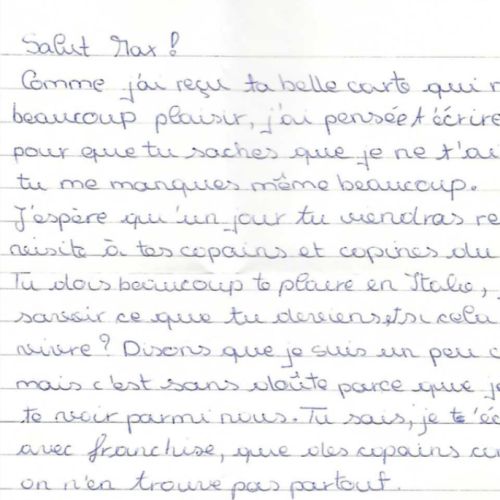 Salut Max !
Comme j'ai reçu ta belle carte qui
beaucoup plaisir, j'ai pensée t'écrire
pour que tu saches que je ne t'ai
tu me manques même beaucoup.
J'espère qu'un jour tu viendras re
visite à tes copains et copines du
Tu dois beaucoup te plaire en Italie,
savoir ce que tu deviens, et si cela
vivre ? Disons que je suis un peu
mais c'est sans doûte parce que je
te voir parmi nous. Tu sais, je t'éc
avec franchise, que des copains
on n'en trouve pas partout.